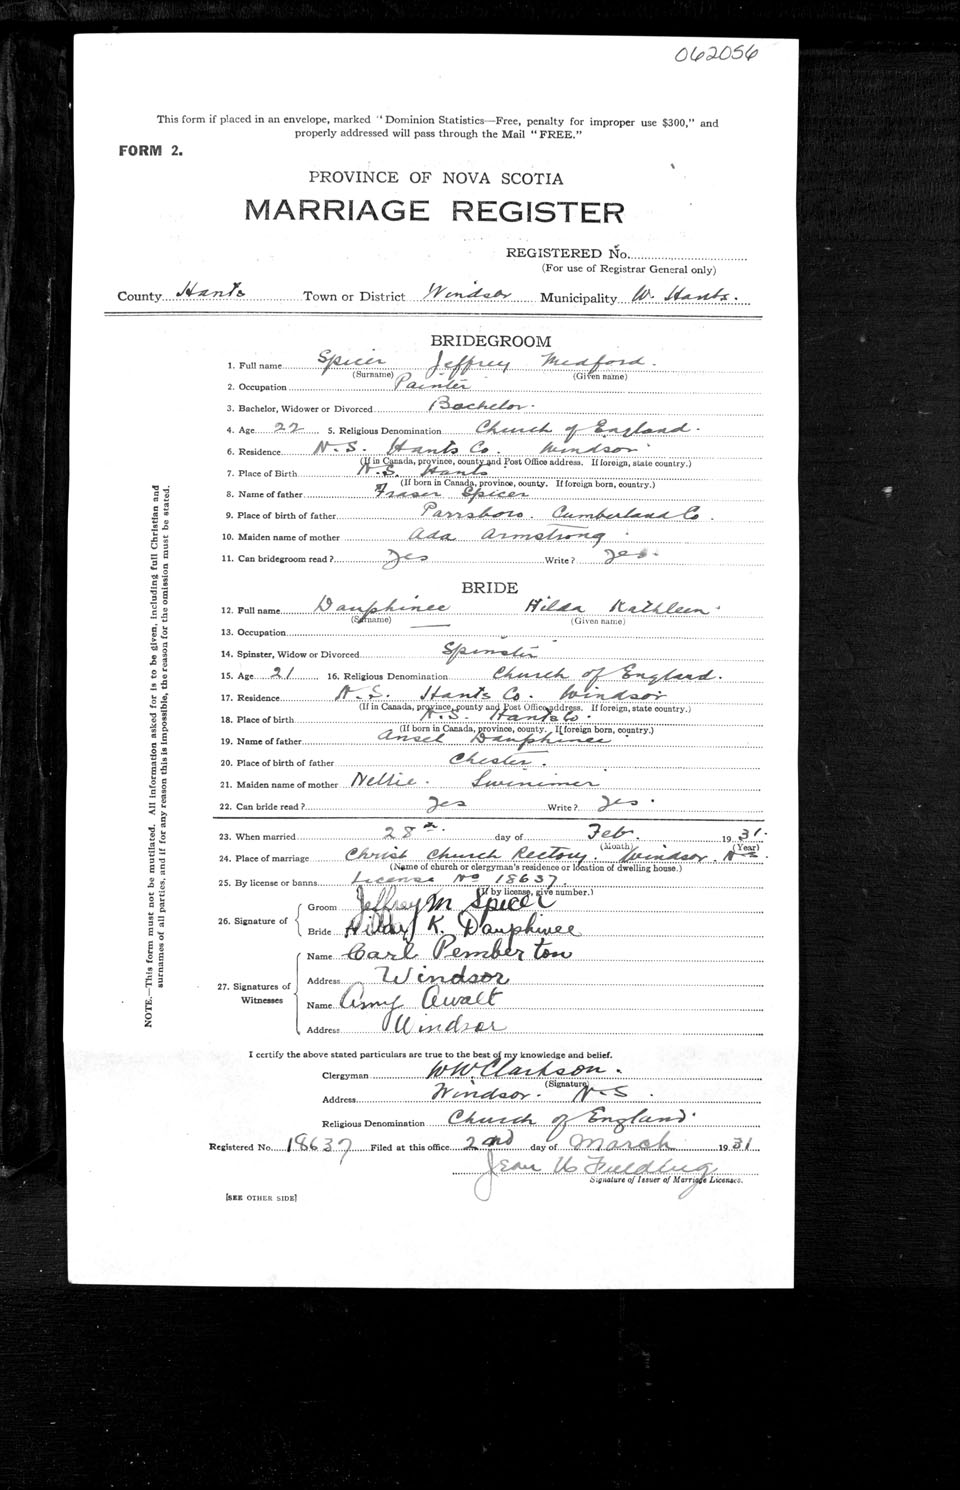 062056
This form if placed in an envelope, marked "Dominion Statistics—Free, penalty for improper use $300," and
properly addressed will pass through the Mail "FREE."
FORM 2.
PROVINCE OF NOVA SCOTIA
MARRIAGE REGISTER
REGISTERED No.
(For use of Registrar General only)
County Hants Town or District Windsor Municipality W. Hants.
BRIDEGROOM
1. Full name Spicer Jeffrey Medford.
(Surname) (Given name)
2. Occupation Painter
3. Bachelor, Widower or Divorced Bachelor.
4. Age 22 5. Religious Denomination Church of England.
6. Residence N.S. Hants Co. Windsor
(If in Canada, province, county and Post Office address. If foreign, state country.)
7. Place of Birth N.S. Hants
(If born in Canada, province, county. If foreign born, country.)
8. Name of father Fraser Spicer
9. Place of birth of father Parrsboro. Cumberland Co.
10. Maiden name of mother Ada Armstrong
11. Can bridegroom read? Yes Write? Yes.
BRIDE
12. Full name Dauphinee Hilda Kathleen.
(Surname) (Given name)
13. Occupation —
14. Spinster, Widow or Divorced Spinster
15. Age 21 16. Religious Denomination Church of England.
17. Residence N.S. Hants Co. Windsor
(If in Canada, province, county and Post Office address. If foreign, state country.)
18. Place of birth N.S. Hants Co.
(If born in Canada, province, county. If foreign born, country.)
19. Name of father Ansel Dauphinee
20. Place of birth of father Chester.
21. Maiden name of mother Nellie. Swinimer
22. Can bride read? Yes Write? Yes.
23. When married 28th day of Feb. 1931.
(Month) (Year)
24. Place of marriage Christ Church Rectory. Windsor. N.S.
(Name of church or clergyman's residence or location of dwelling house.)
25. By license or banns License No 18637.
(If by license, give number.)
26. Signature of
Groom Jeffrey M Spicer
Bride Hilda K. Dauphinee
27. Signatures of Witnesses
Name Carl Pemberton
Address Windsor
Name Amy Awalt
Address Windsor
I certify the above stated particulars are true to the best of my knowledge and belief.
Clergyman W W Clarkson.
(Signature)
Address Windsor. N.S.
Religious Denomination Church of England.
Registered No. 18637 Filed at this office 2nd day of March 1931
Jean
Signature of Issuer of Marriage Licenses.
[SEE OTHER SIDE]
NOTE.—This form must not be mutilated. All information asked for is to be given, including full Christian and
surnames of all parties, and if for any reason this is impossible, the reason for the omission must be stated.